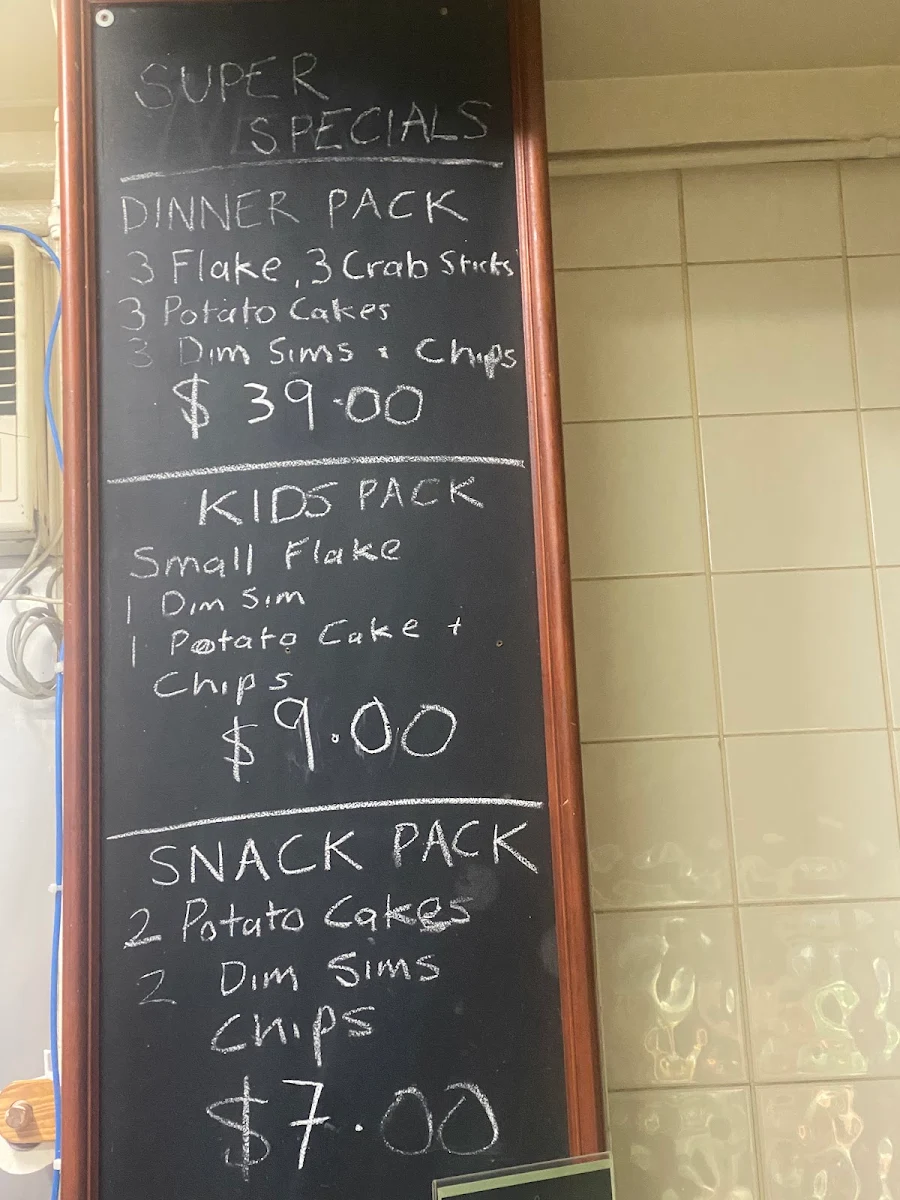 SUPER
SPECIALS
DINNER PACK
3 Flake, 3 Crab Sticks
3 Potato Cakes
3 Dim Sims + Chips
$39.00
KIDS PACK
Small Flake
1 Dim Sim
1 Potato Cake +
Chips
$9.00
SNACK PACK
2 Potato Cakes
2 Dim Sims
Chips
$7.00